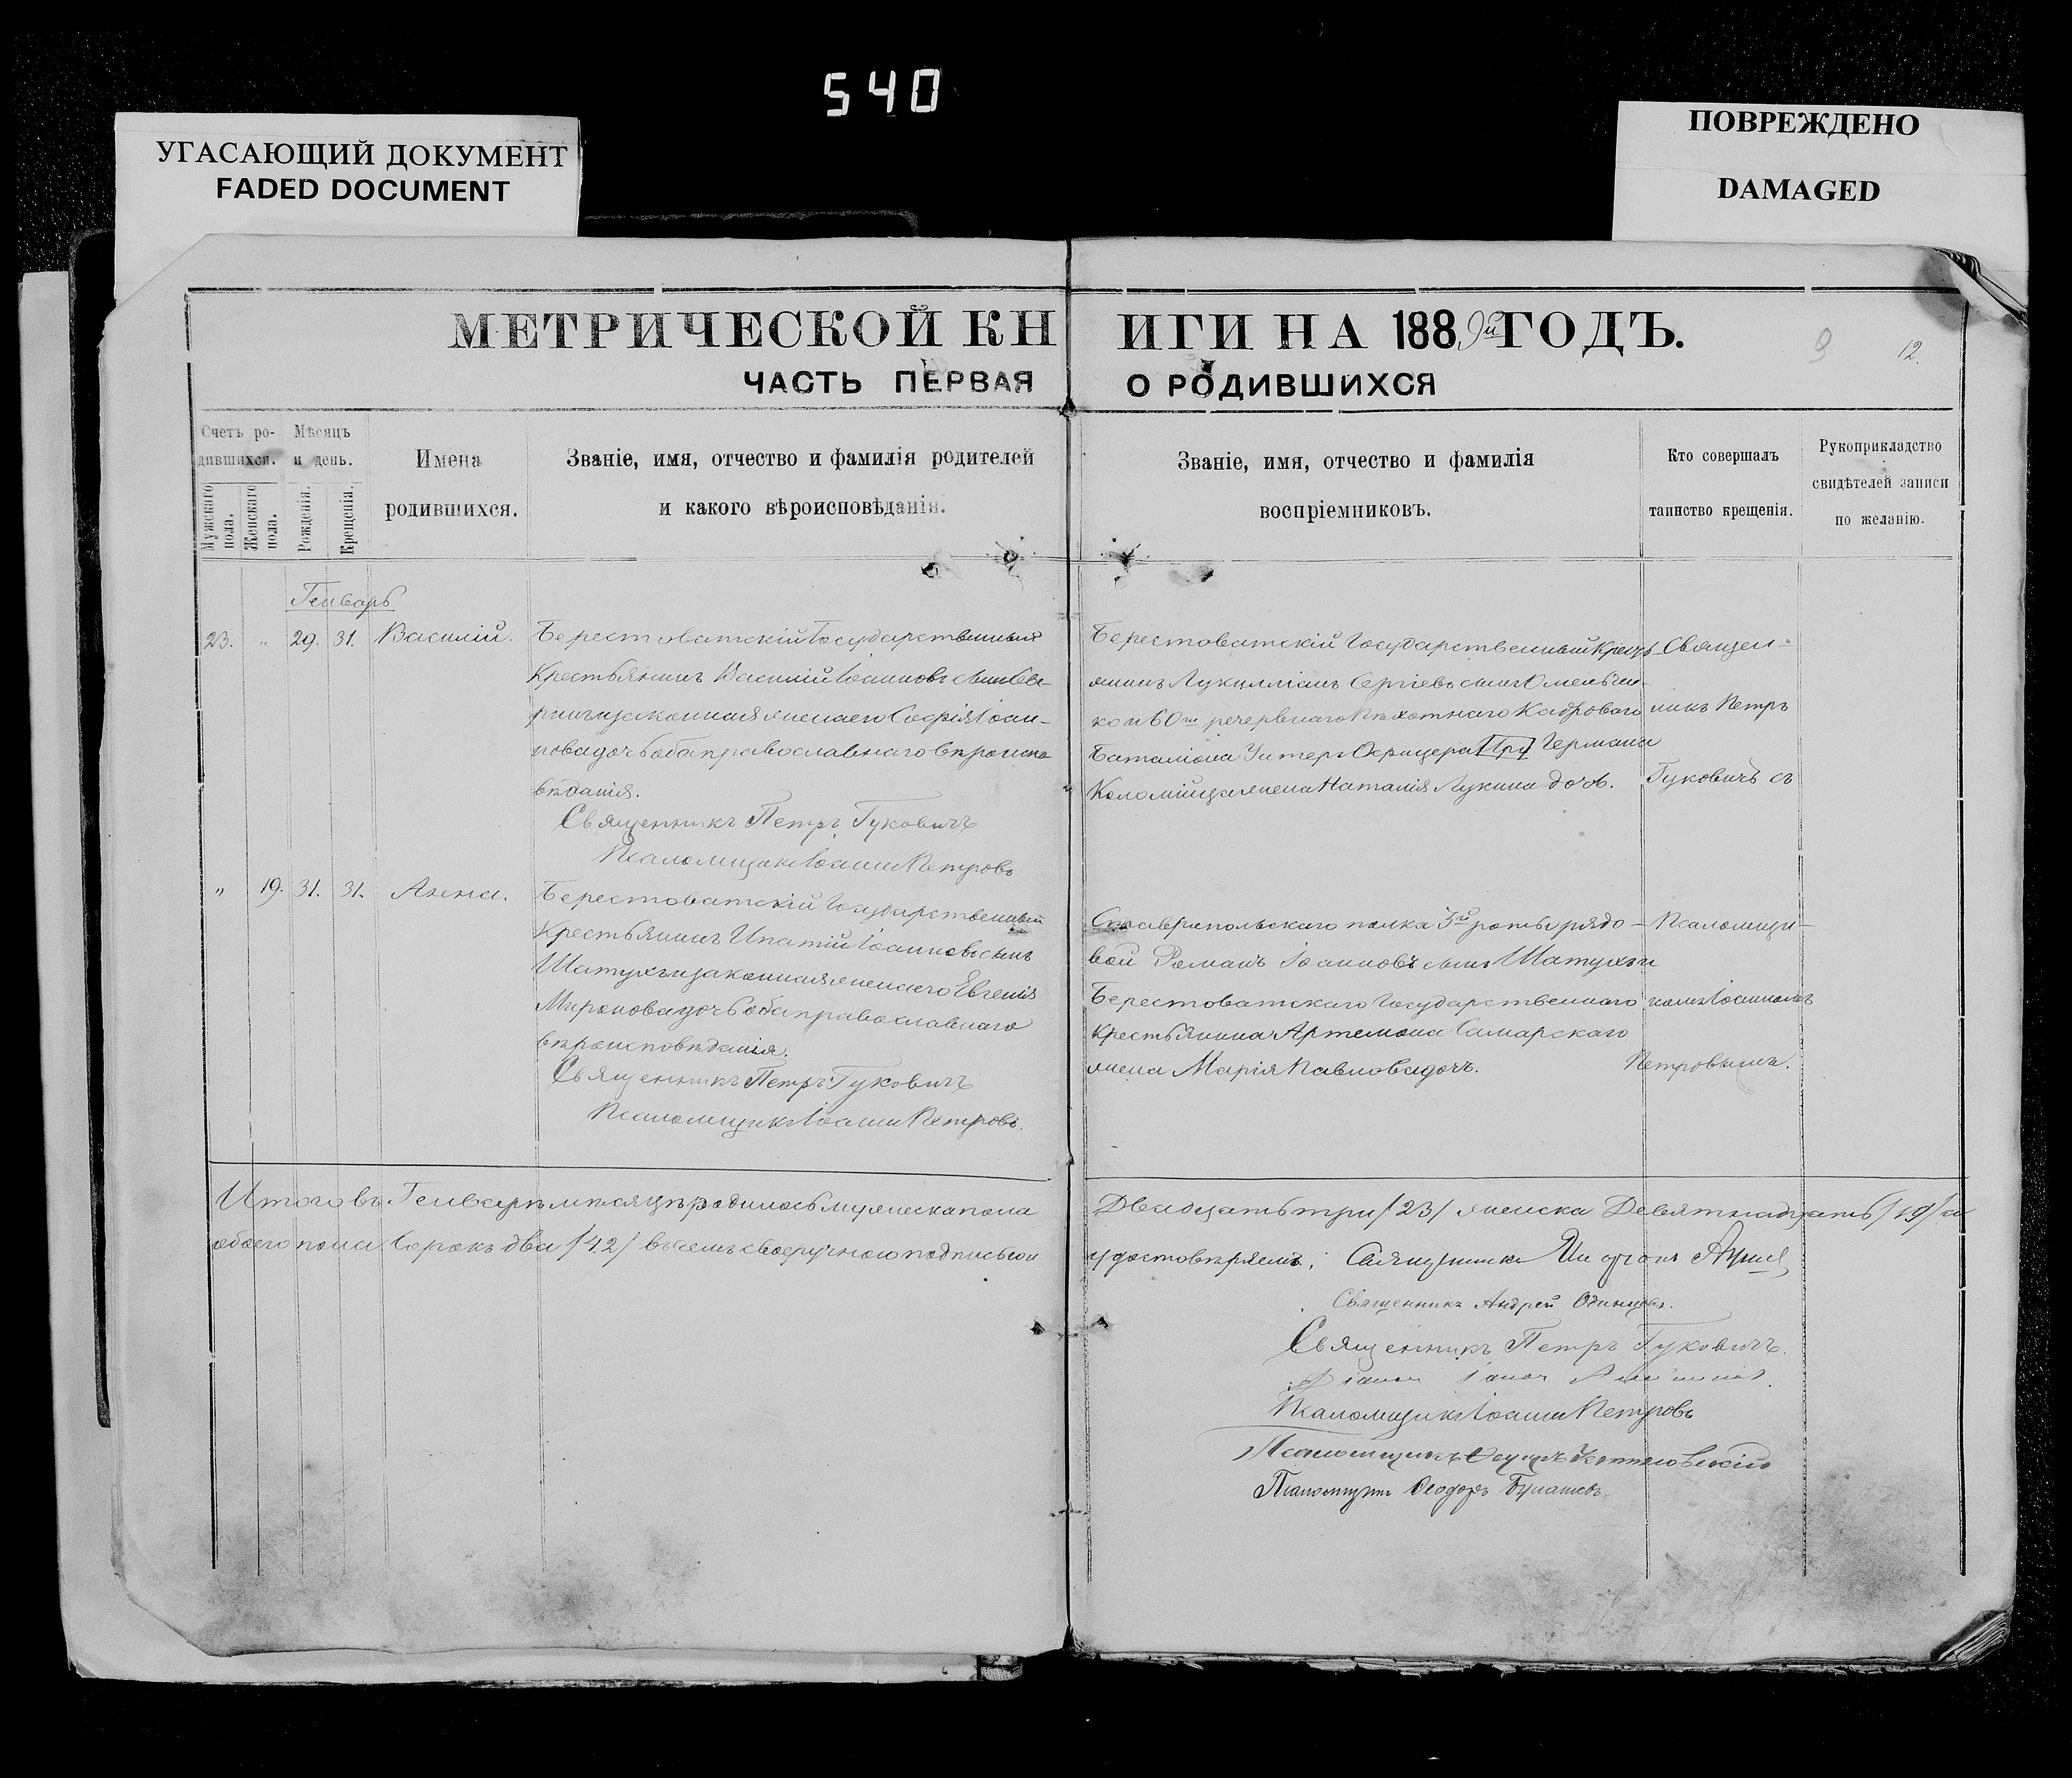 540
УГАСАЮЩИЙ ДОКУМЕНТ
FADED DOCUMENT
ПОВРЕЖДЕНО
DAMAGED
МЕТРИЧЕСКОЙ КНИГИ НА 1889й ГОДЪ.
9 12.
ЧАСТЬ ПЕРВАЯ О РОДИВШИХСЯ
Счетъ ро-
дившихся.
Мужскаго пола.
Женскаго пола.
Мѣсяцъ
и день.
Рожденія.
Крещенія.
Имена
родившихся.
Званіе, имя, отчество и фамилія родителей
и какого вѣроисповѣданія.
Званіе, имя, отчество и фамилія
воспріемниковъ.
Кто совершалъ
таинство крещенія.
Рукоприкладство
свидѣтелей записи
по желанію.
Генварь
23. " 29. 31. Василій.
Берестоватскій Государственный
Крестьянинъ Василій Іоанновъ сынъ
и законная жена его Софія Іоан-
нова дочь оба православнаго вѣроиспо
вѣданія.
Священникъ Петръ Гуковичъ
Псаломщикъ Іоаннъ Петровъ
Берестоватскій Государственный Кресть-
янинъ Лукилліанъ Сергіевъ сынъ Омельчен-
ко и 60го резервнаго Пѣхотнаго Кадроваго
Баталіона Унтеръ Офицера Германа
Коломійца жена Наталія Лукина дочь.
Священ-
никъ Петръ
Гуковичъ съ
" 19. 31. 31. Анна.
Берестоватскій Государственный
Крестьянинъ Ипатій Іоанновъ сынъ
Шатухъ и законная жена его Евгенія
Миронова дочь оба православнаго
вѣроисповѣданія.
Священникъ Петръ Гуковичъ
Псаломщикъ Іоаннъ Петровъ.
Ставропольскаго полка 3й роты рядо-
вой Романъ Іоанновъ сынъ Шатухъ и
Берестоватскаго Государственнаго
Крестьянина Артемона Самарскаго
жена Марія Павлова дочь.
Псаломщи-
комъ Іоанномъ
Петровымъ.
Итого въ Генварѣ мѣсяцѣ родилось мужеска пола
Двадцать три /23/ женска Девятнадцать /19/ а
обоего пола Сорокъ два /42/ въ чемъ своеручною подписью
удостовѣряемъ: Священникъ
Священникъ Андрей Одинцовъ.
Священникъ Петръ Гуковичъ.
Діаконъ
Псаломщикъ Іоаннъ Петровъ
Псаломщикъ
Псаломщикъ Ѳеодоръ